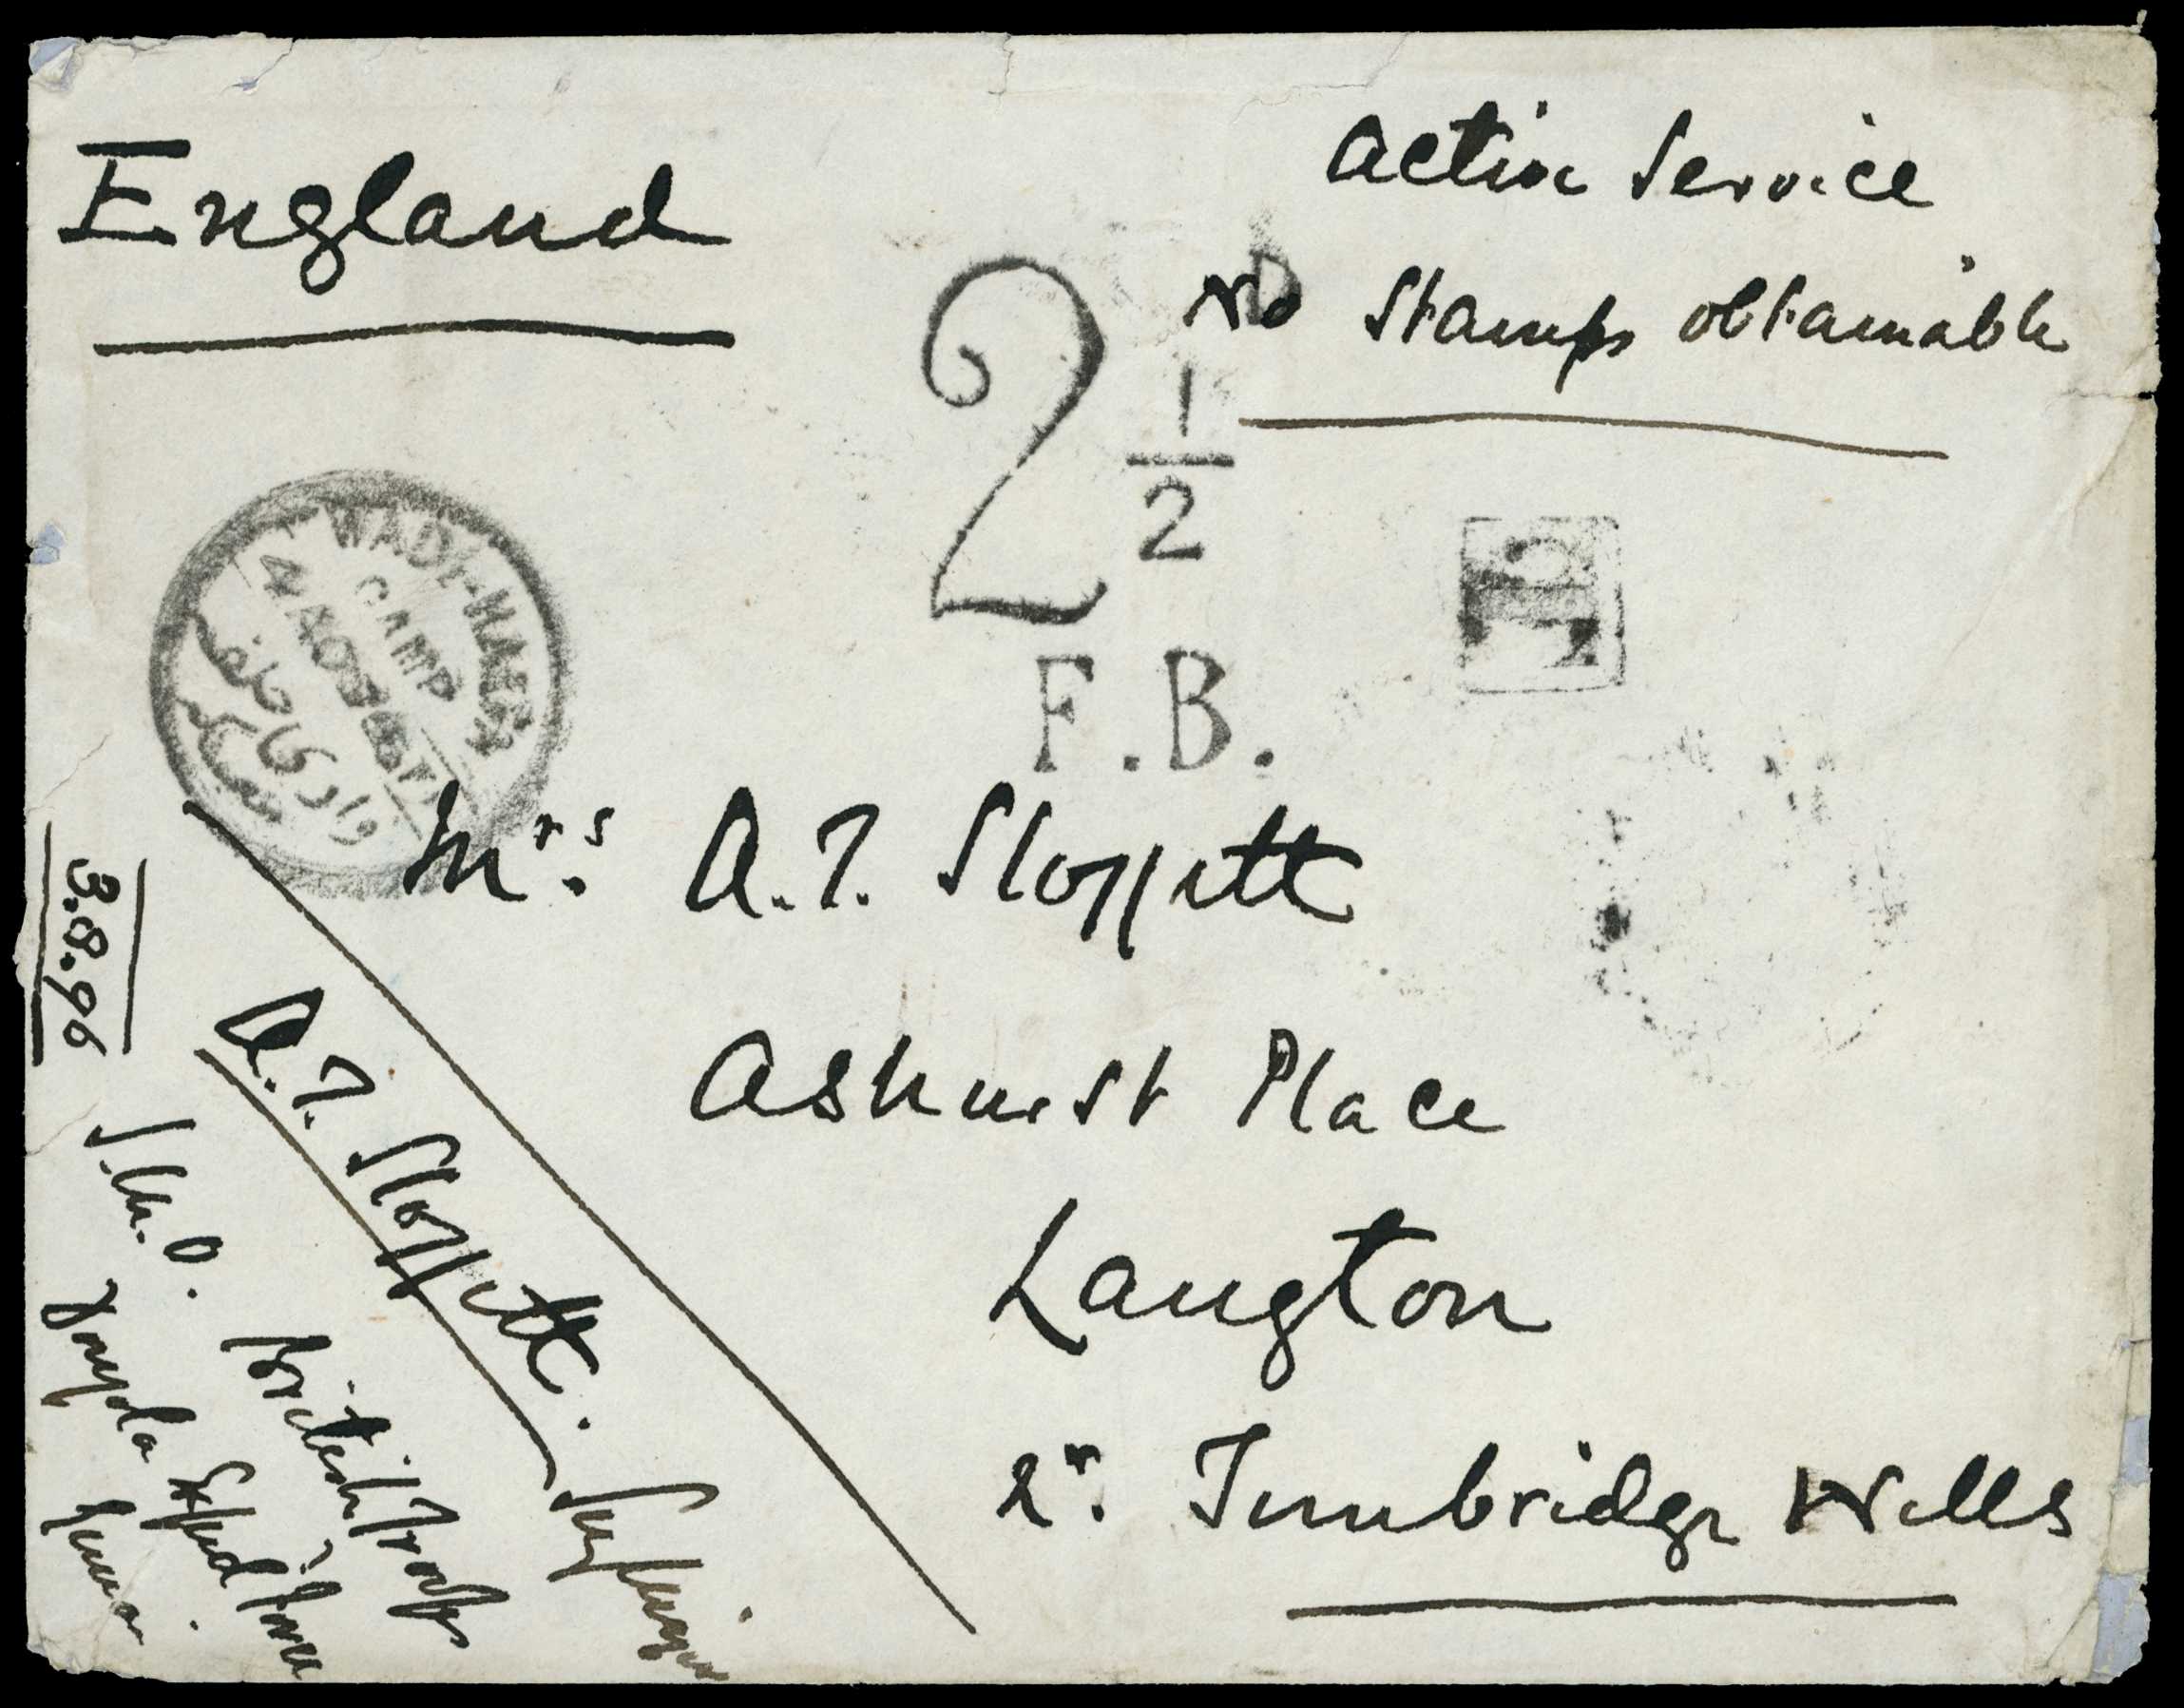 England
Active Service
No Stamps obtainable
2 1/2
F.B.
T
WADI-HALFA
CAMP
وادى حلفا
معسكر
Mrs. A.T. Sloggett
Ashurst Place
Langton
Nr. Tunbridge Wells
3.8.96
A.T. Sloggett.
S.M.O. British Troops
Dongola Exped Force